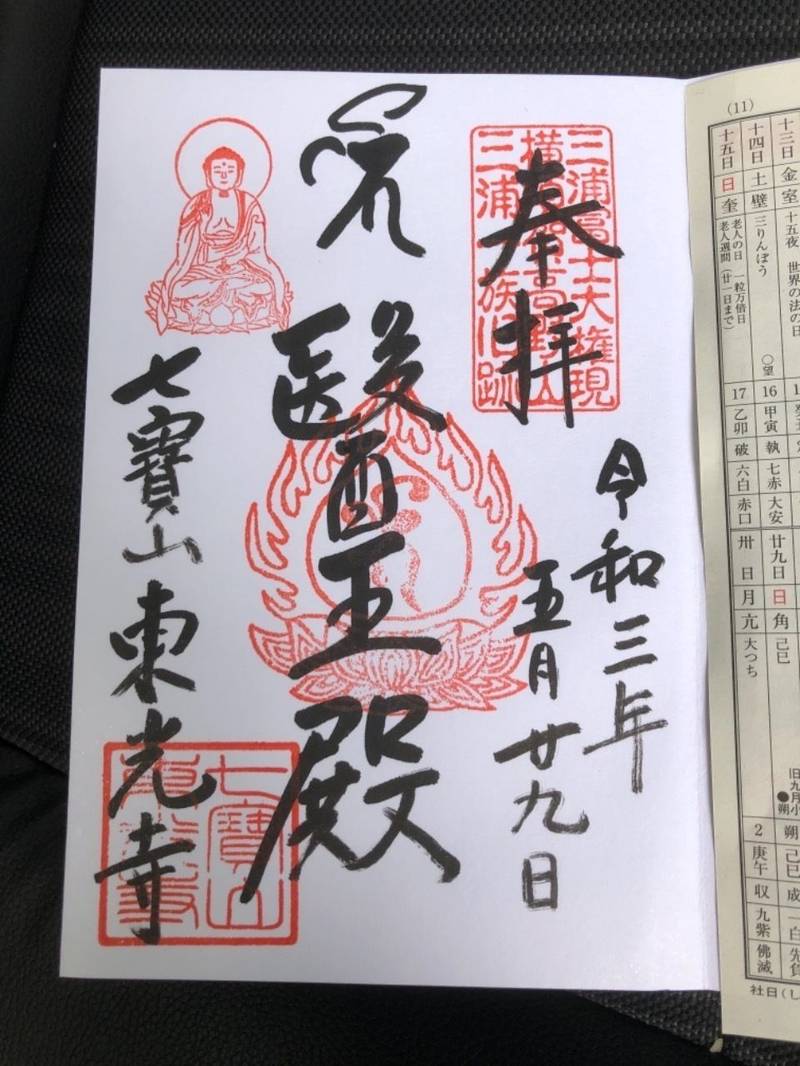 奉拝
三浦富士大権現
三浦一族旧跡
令和三年
五月廿九日
醫王殿
七寶山東光寺
七寶山
東光寺
(11)
十三日 金 室 十五夜 世界の法の日
十四日 土 壁 三りんぼう ○望
十五日 日 奎 老人の日 一粒万倍日
老人週間(廿一日まで)
16 甲寅 執 七赤 大安
17 乙卯 破 六白 赤口
廿九日 日 角 己巳
卅日 月 亢 大つち
旧九月小
●朔
朔 己巳 成 一白 先負
2 庚午 収 九紫 佛滅